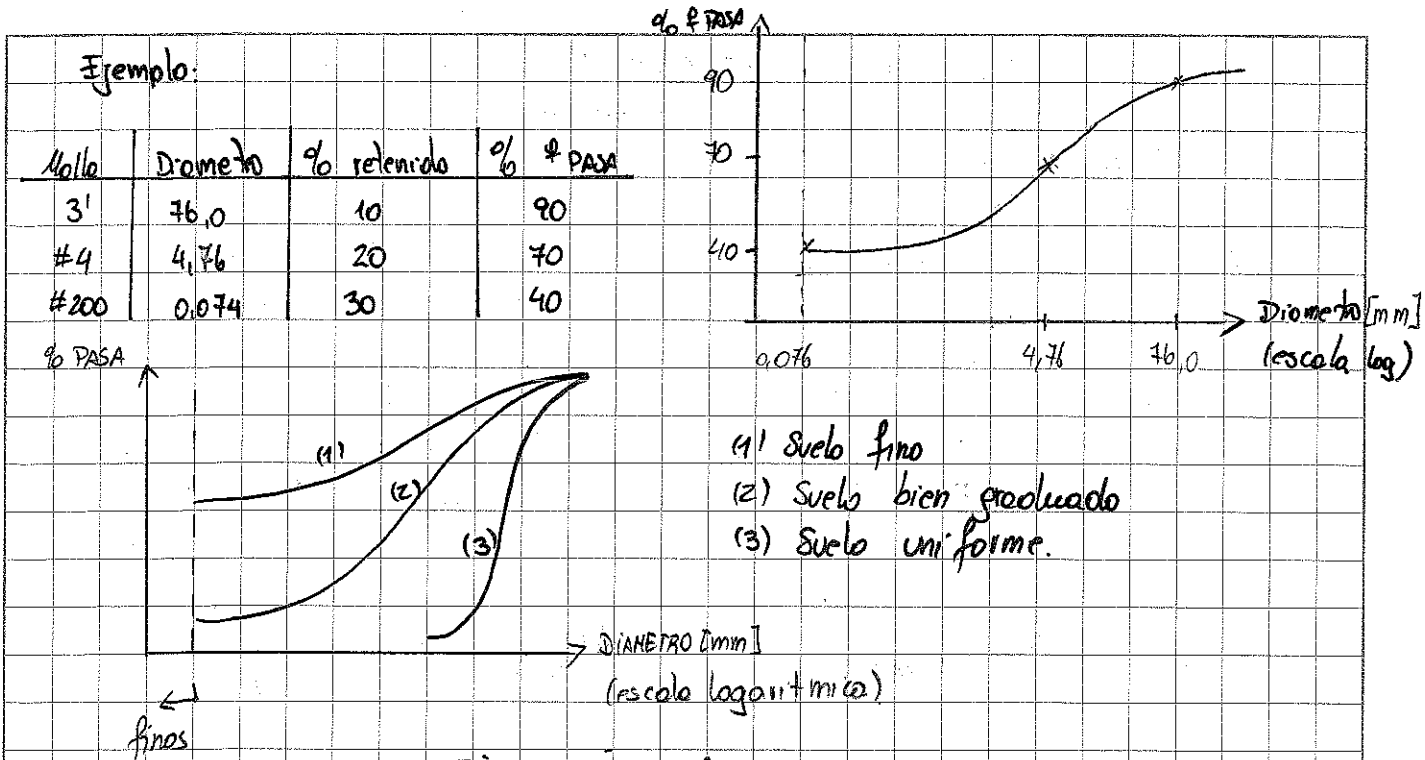 Ejemplo:
Malla Diametro % retenido % q PASA
3' 76,0 10 90
#4 4,76 20 70
#200 0,074 30 40
% q PASA
90
70
40
0,076 4,76 76,0
Diametro [mm]
(escala log)
% PASA
(1)
(2)
(3)
DIAMETRO [mm]
(escala logaritmica)
finos
(1) Suelo fino
(2) Suelo bien graduado
(3) Suelo uniforme.